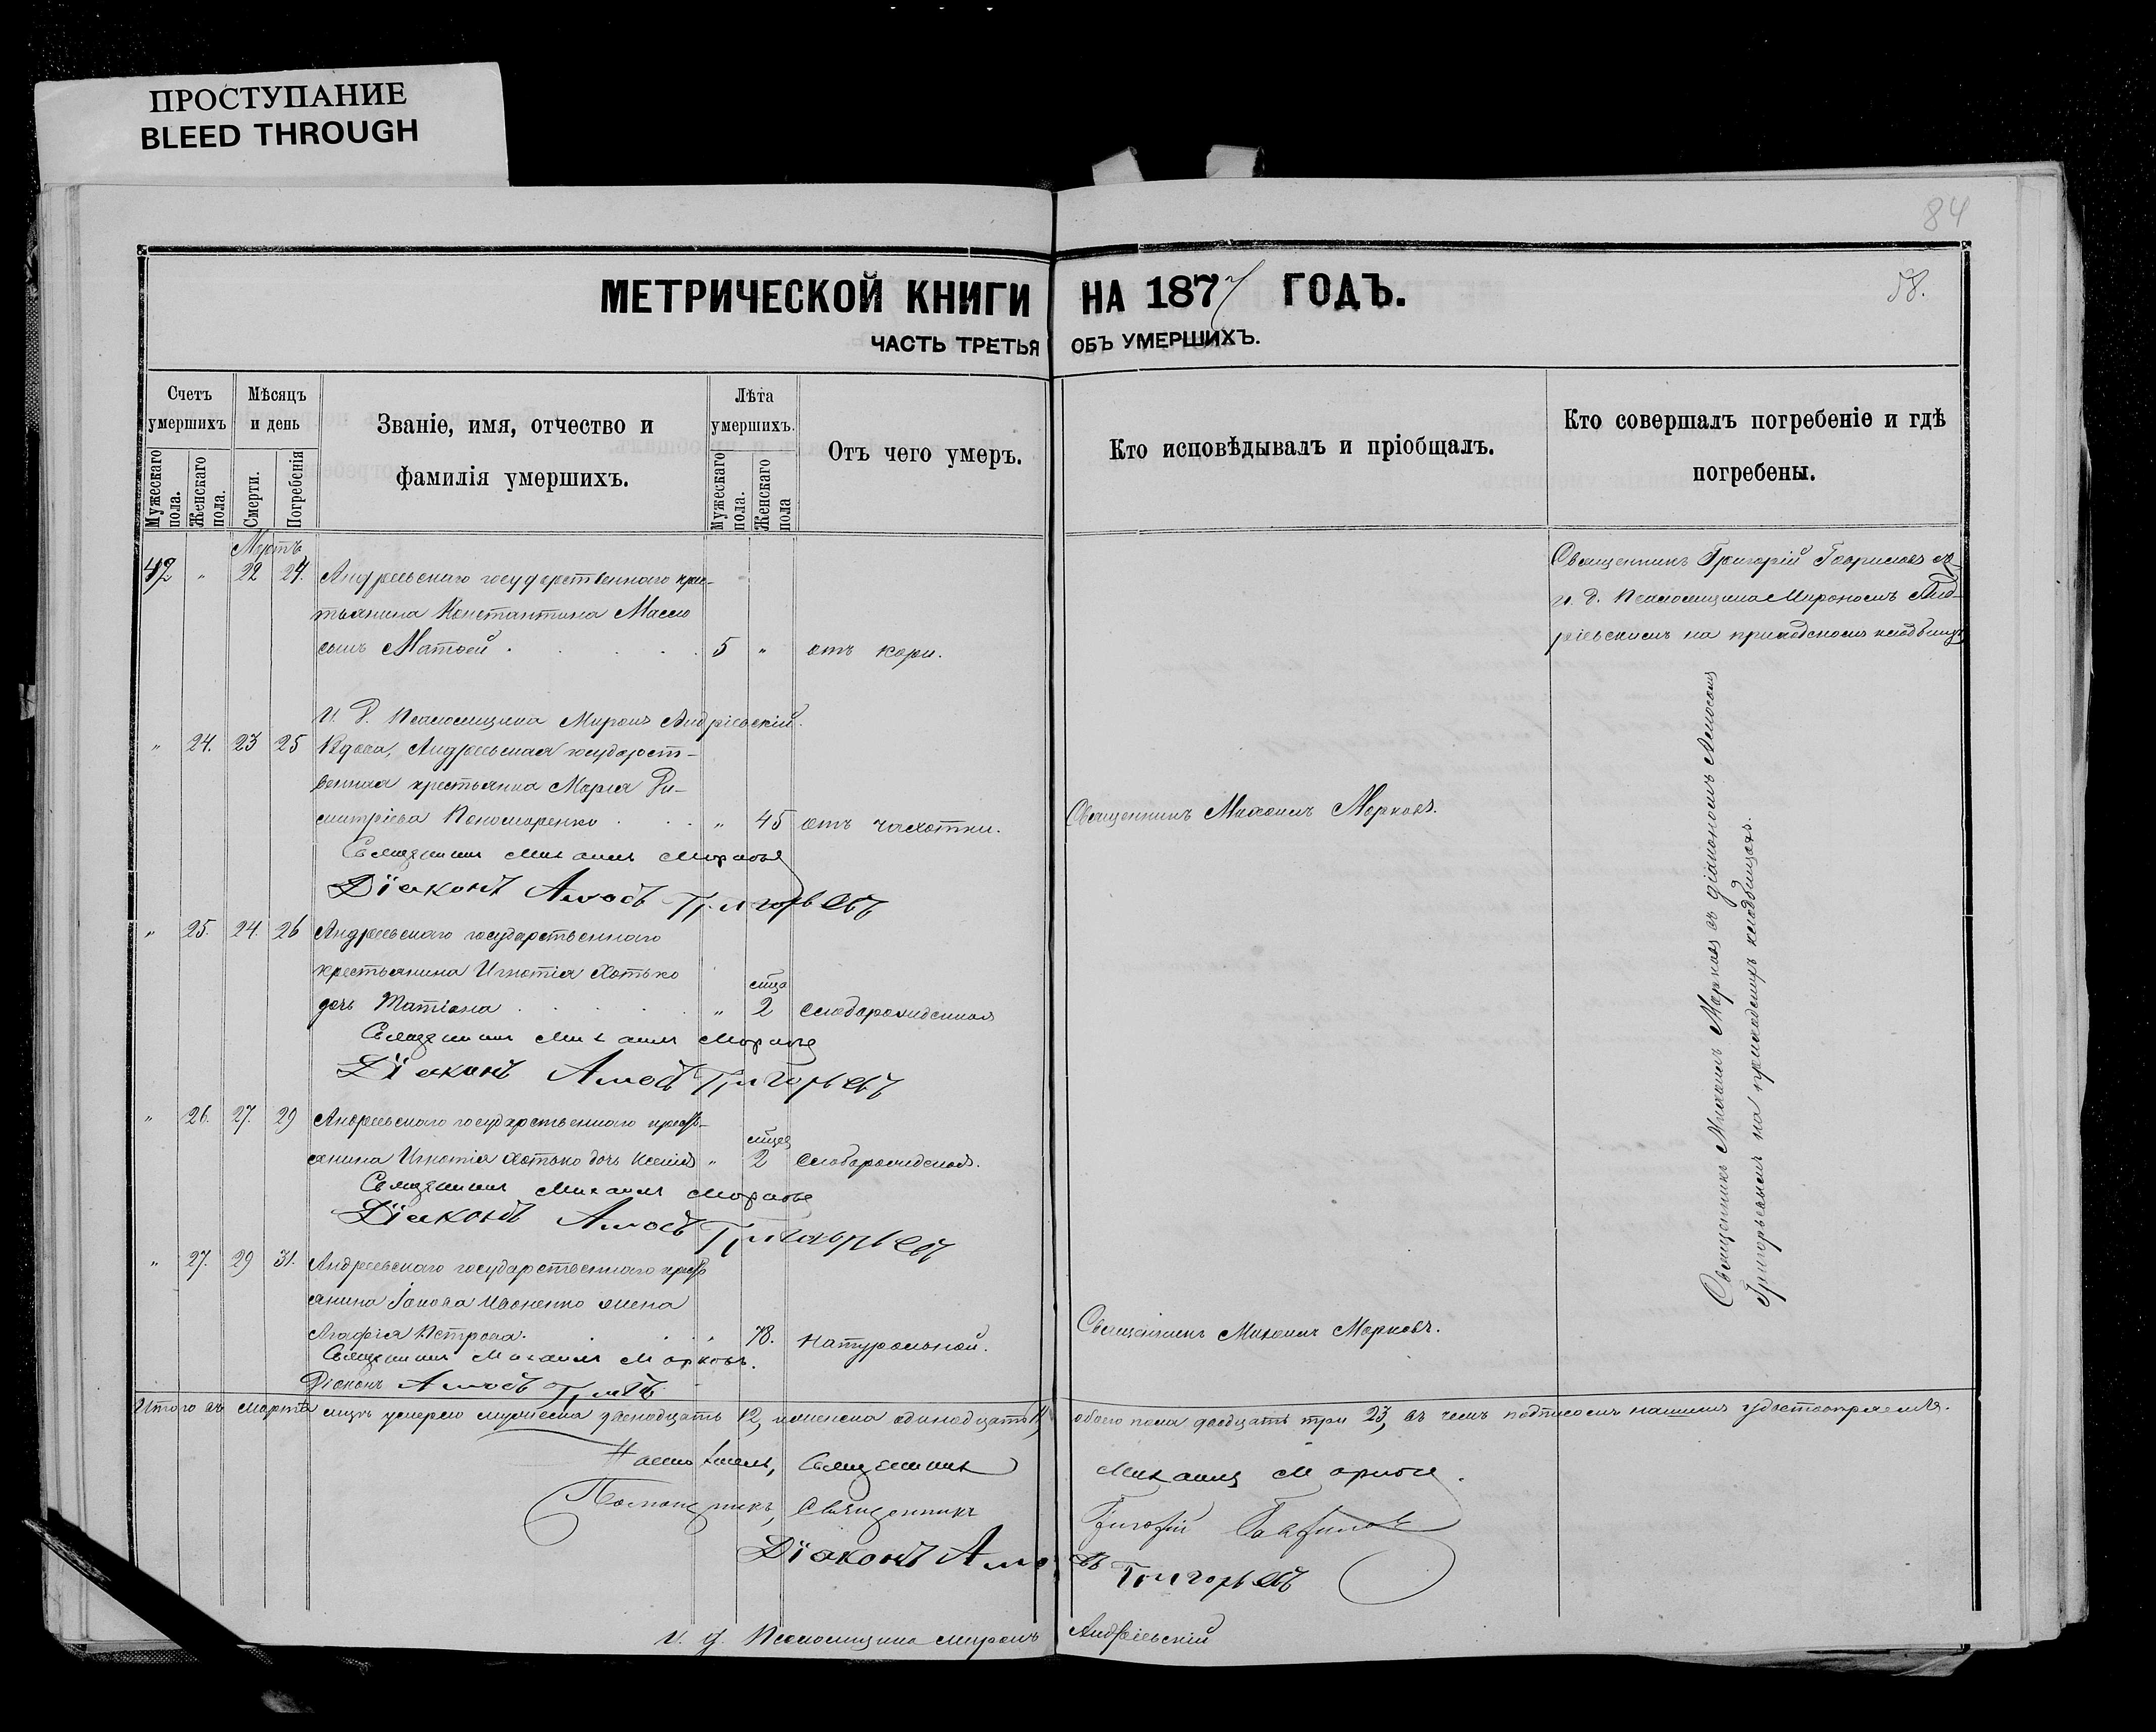 ПРОСТУПАНИЕ
BLEED THROUGH
84
58.
МЕТРИЧЕСКОЙ КНИГИ НА 1877 ГОДЪ.
ЧАСТЬ ТРЕТЬЯ ОБЪ УМЕРШИХЪ.
Счетъ умершихъ
Мужескаго пола.
Женскаго пола.
Мѣсяцъ и день
Смерти.
Погребенія
Званіе, имя, отчество и
фамилія умершихъ.
Лѣта умершихъ.
Мужескаго пола.
Женскаго пола
Отъ чего умеръ.
Кто исповѣдывалъ и пріобщалъ.
Кто совершалъ погребеніе и гдѣ
погребены.
Мартъ
12 " 22 24. Андреевскаго государственнаго крес-
тьянина Константина
сынъ Матвей 5 " отъ кори.
Священникъ Григорій Гавриловъ съ
и. д. Псаломщика Мирономъ Анд-
ріевскимъ на приходскомъ кладбищѣ
И. д. Псаломщика Миронъ Андріевскій.
" 24. 23 25 Вдова, Андреевская государст-
венная крестьянка Марія Ди-
митріева Пономаренко " 45 отъ чахотки.
Священникъ Михаилъ Марковъ.
Священникъ Михаилъ Марковъ
Діаконъ Амосъ Григорьевъ
" 25. 24. 26 Андреевскаго государственнаго
крестьянина Игнатія Хотько
дочь Татіана " 2 мца слаборожденная
Священникъ Михаилъ Марковъ
Діаконъ Амосъ Григорьевъ
" 26. 27. 29 Андреевскаго государственнаго кресть-
янина Игнатія Хотько дочь Ксенія " 2 мцев слаборожденная.
Священникъ Михаилъ Марковъ
Діаконъ Амосъ Григорьевъ
" 27. 29 31. Андреевскаго государственнаго кресть
янина Іакова Ивоненко жена
Агафія Петрова. 78. натуральной.
Священникъ Михаилъ Марковъ.
Священникъ Михаилъ Марковъ.
Діаконъ Амосъ
Священникъ Михаилъ Марковъ съ діакономъ Амосомъ
Григорьевымъ на приходскихъ кладбищахъ.
Итого въ Мартѣ мцѣ умерло мужеска двенадцать 12, женска одинадцать 11, обоего пола двадцать три 23, въ чемъ подписомъ нашимъ удостовѣряемъ.
Настоятель, Священникъ Михаилъ Марковъ.
Помощникъ, Священникъ Григорій Гавриловъ
Діаконъ Амосъ Григорьевъ
И. д. Псаломщика Миронъ Андріевскій